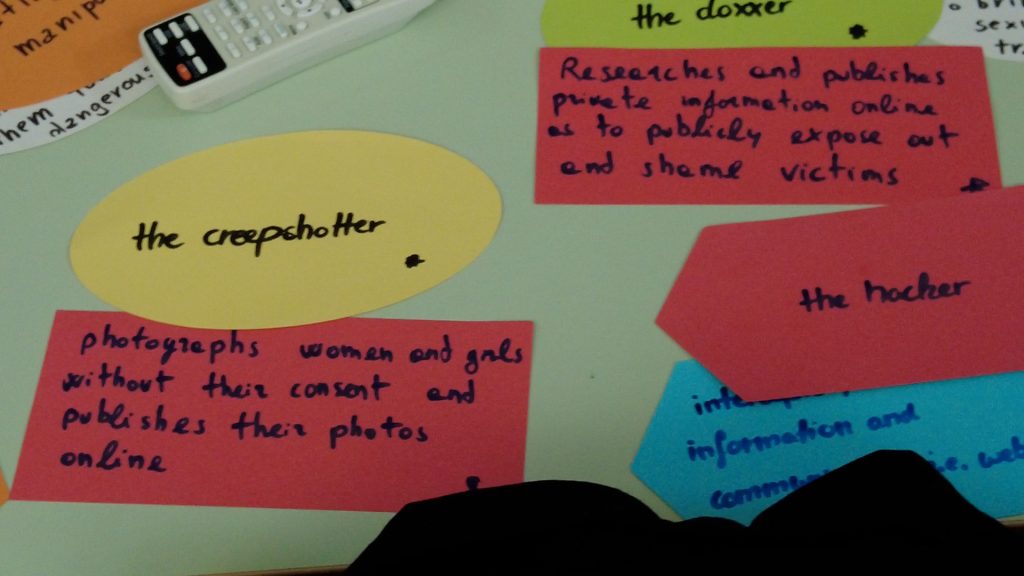 manipu
them
dangerous
the doxxer
Researches and publishes
private information online
as to publicly expose out
and shame victims
the creepshotter
photographs women and girls
without their consent and
publishes their photos
online
the hacker
information and
i.e. web